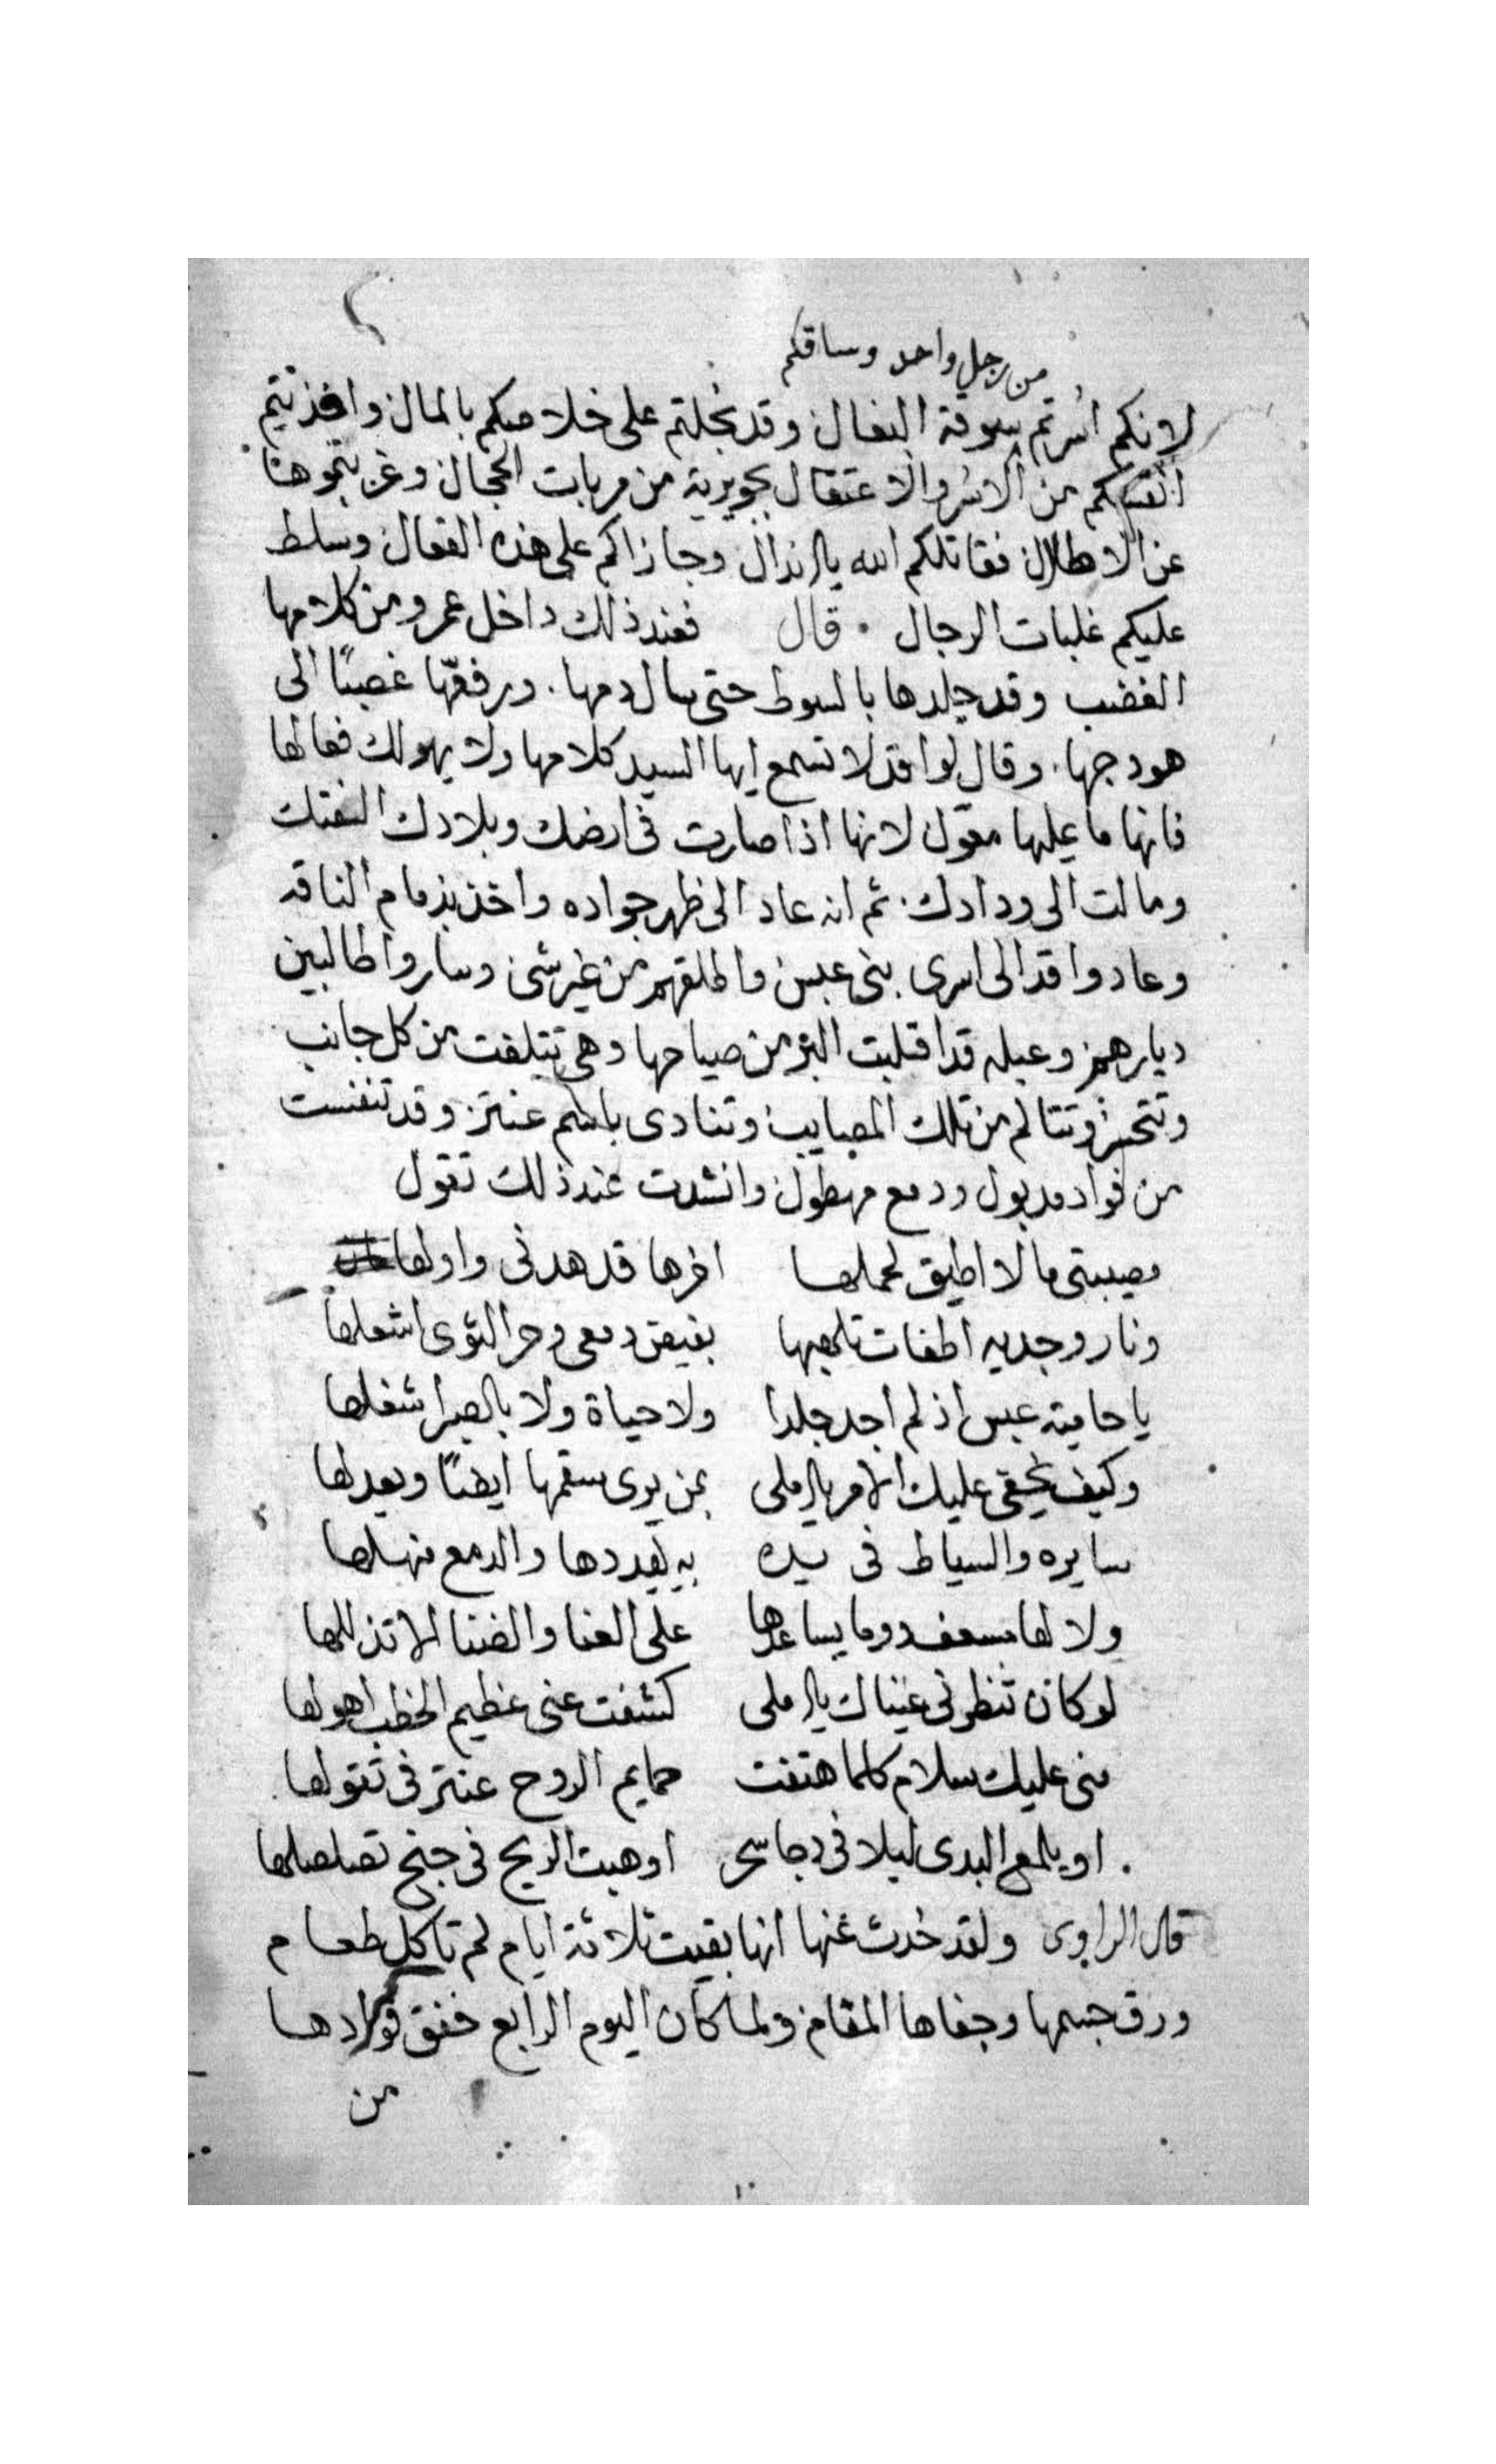 من رجل واحد وساقكم
لانكم اسرتم بسوقة البغال وقد بخلتم على خلاصكم بالمال وافديتم
انفسكم من الاسر والاعتقال بجويرية من مربات الحجال وغربتموها
عن الاطلال فقاتلكم الله يالانذال وجازاكم على هذه الفعال وسلط
عليكم غلبات الرجال . قال فعند ذلك داخل عمرو من كلامها
الغضب وقد جلدها بالسوط حتى سال دمها . ورفعها غصبًا الى
هودجها . وقال لواقد لا تسمع ايها السيد كلامها ولا يهولك فعالها
فانها ما عليها معوّل لانها اذا صارت في ارضك وبلادك الفتك
ومالت الى ودادك . ثم انه عاد الى ظهر جواده واخذ بزمام الناقه
وعاد واقد الى اسرى بني عبس واطلقهم من غير شى وساروا طالبين
ديارهم وعبله قد اقلبت البر من صياحها وهي تتلفت من كل جانب
وتتحسر وتتالم من تلك المصايب وتنادى باسم عنتر وقد تنفست
من فواد مدبول ودمع مهطول وانشدت عند ذلك تقول
مصيبتى ما لا اطيق لحملها اخرها قد هدنى واولها
ونار وجديه اطفات تلهبها بفيض دمعى وحر النوى اشعلها
يا حامية عبس اذ لم اجد جلدا ولا حياة ولا بالصبر اشغلها
وكيف يخفى عليك الامر يالاملى بمن يرى سقمها ايضًا ويعدلها
سايره والسياط فى يده به يهددها والدمع منهلها
ولا لها مسعف وما يساعدها على العنا والضنا الا تذللها
لو كان تنظرنى عيناك يالاملى كشفت عنى عظيم الخطب اهولها
منى عليك سلام كلما هتفت حمايم الدوح عنتر فى تقولها
. او يلمع البدى ليلا فى دجا سحر او هبت الريح فى جنح تصلصلها
قال الراوى ولقد حُدث عنها انها بقيت ثلاثة ايام لم تاكل طعام
ورق جسمها وجفاها المقام ولما كان اليوم الرابع خفق فوادها
من
١٠